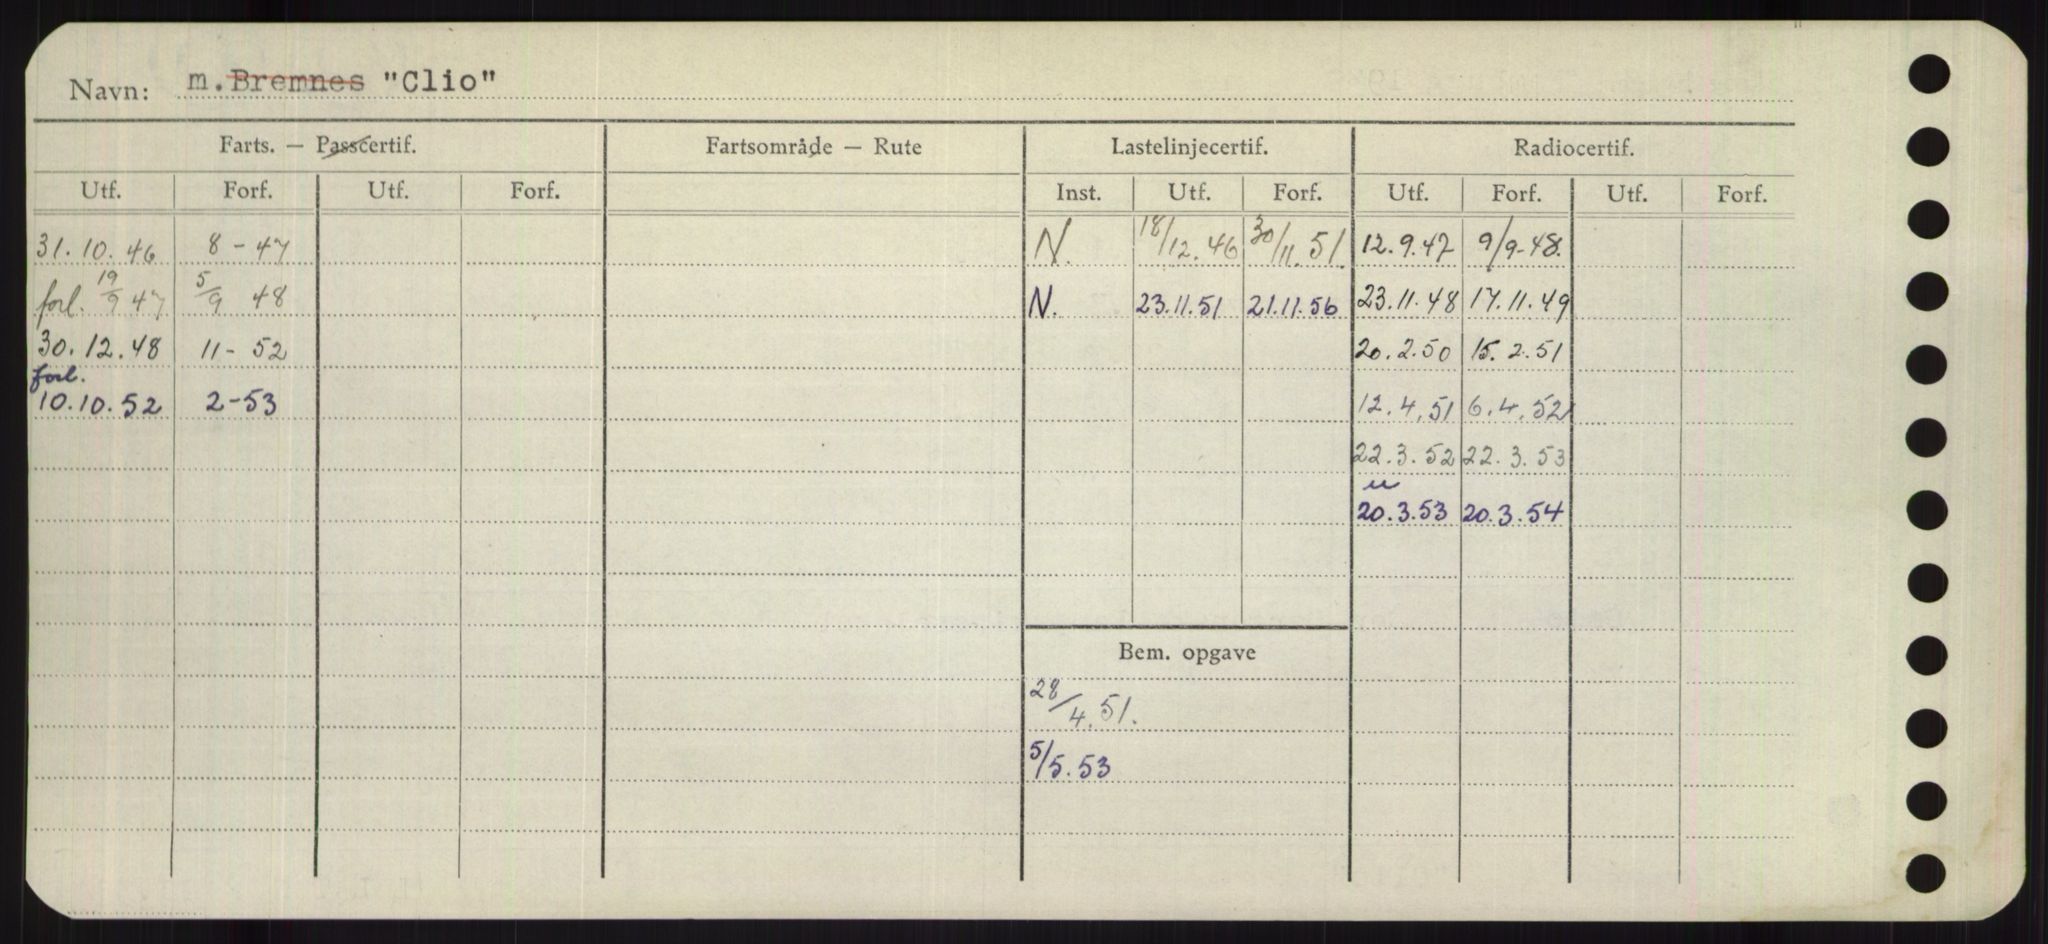 Navn: m. Bremnes "Clio"
Farts. — Passcertif. Fartsområde — Rute Lastelinjecertif. Radiocertif.
Utf. Forf. Utf. Forf. Inst. Utf. Forf. Utf. Forf. Utf. Forf.
31.10.46 8-47 N. 18/12.46 30/11.51. 12.9.47 9/9-48.
forl. 19/9 47 5/9 48 N. 23.11.51 21.11.56 23.11.48 17.11.49
30.12.48 11-52 20.2.50 15.2.51
forl.
10.10.52 2-53 12.4.51 6.4.52
22.3.52 22.3.53
20.3.53 20.3.54
Bem. opgave
28/4.51.
5/5.53